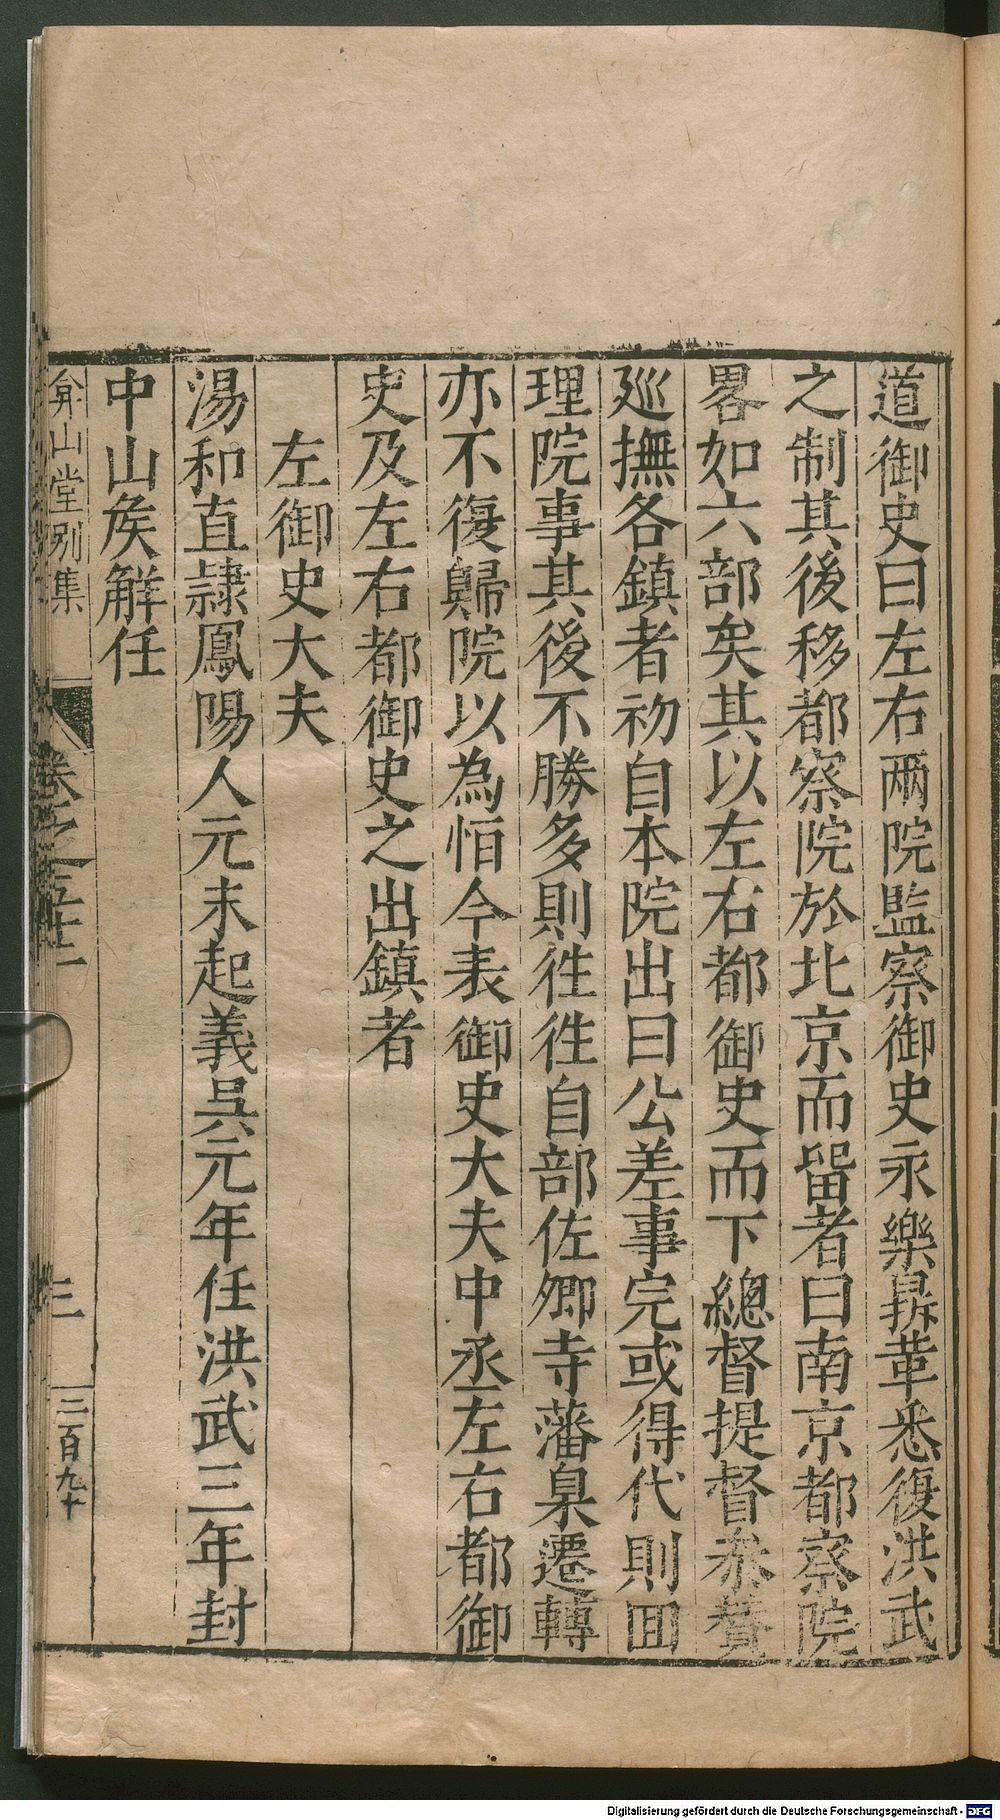 道御史曰左右兩院監察御史永樂鼎革悉復洪武
之制其後移都察院於北京而留者曰南京都察院
畧如六部矣其以左右都御史而下總督提督叅贊
廵撫各鎮者初自本院出曰公差事完或得代則回
理院事其後不勝多則徃徃自部佐卿寺藩臬遷轉
亦不復歸院以為恒今表御史大夫中丞左右都御
史及左右都御史之出鎮者
左御史大夫
湯和直隷鳳陽人元末起義吳元年任洪武三年封
中山矦觧任
弇山堂别集
卷之五十一
三
三百九十
Digitalisierung gefördert durch die Deutsche Forschungsgemeinschaft - DFG